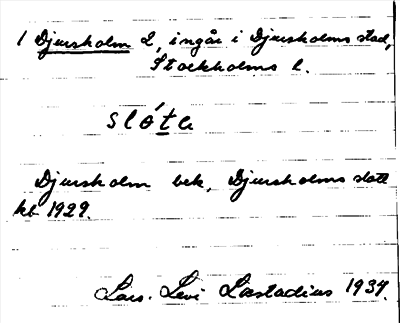 1 Djursholm 2, ingår i Djursholms stad,
Stockholms l.
slóta
Djursholm bek, Djursholms slott
kb 1929.
Lars-Levi Læstadius 1937.